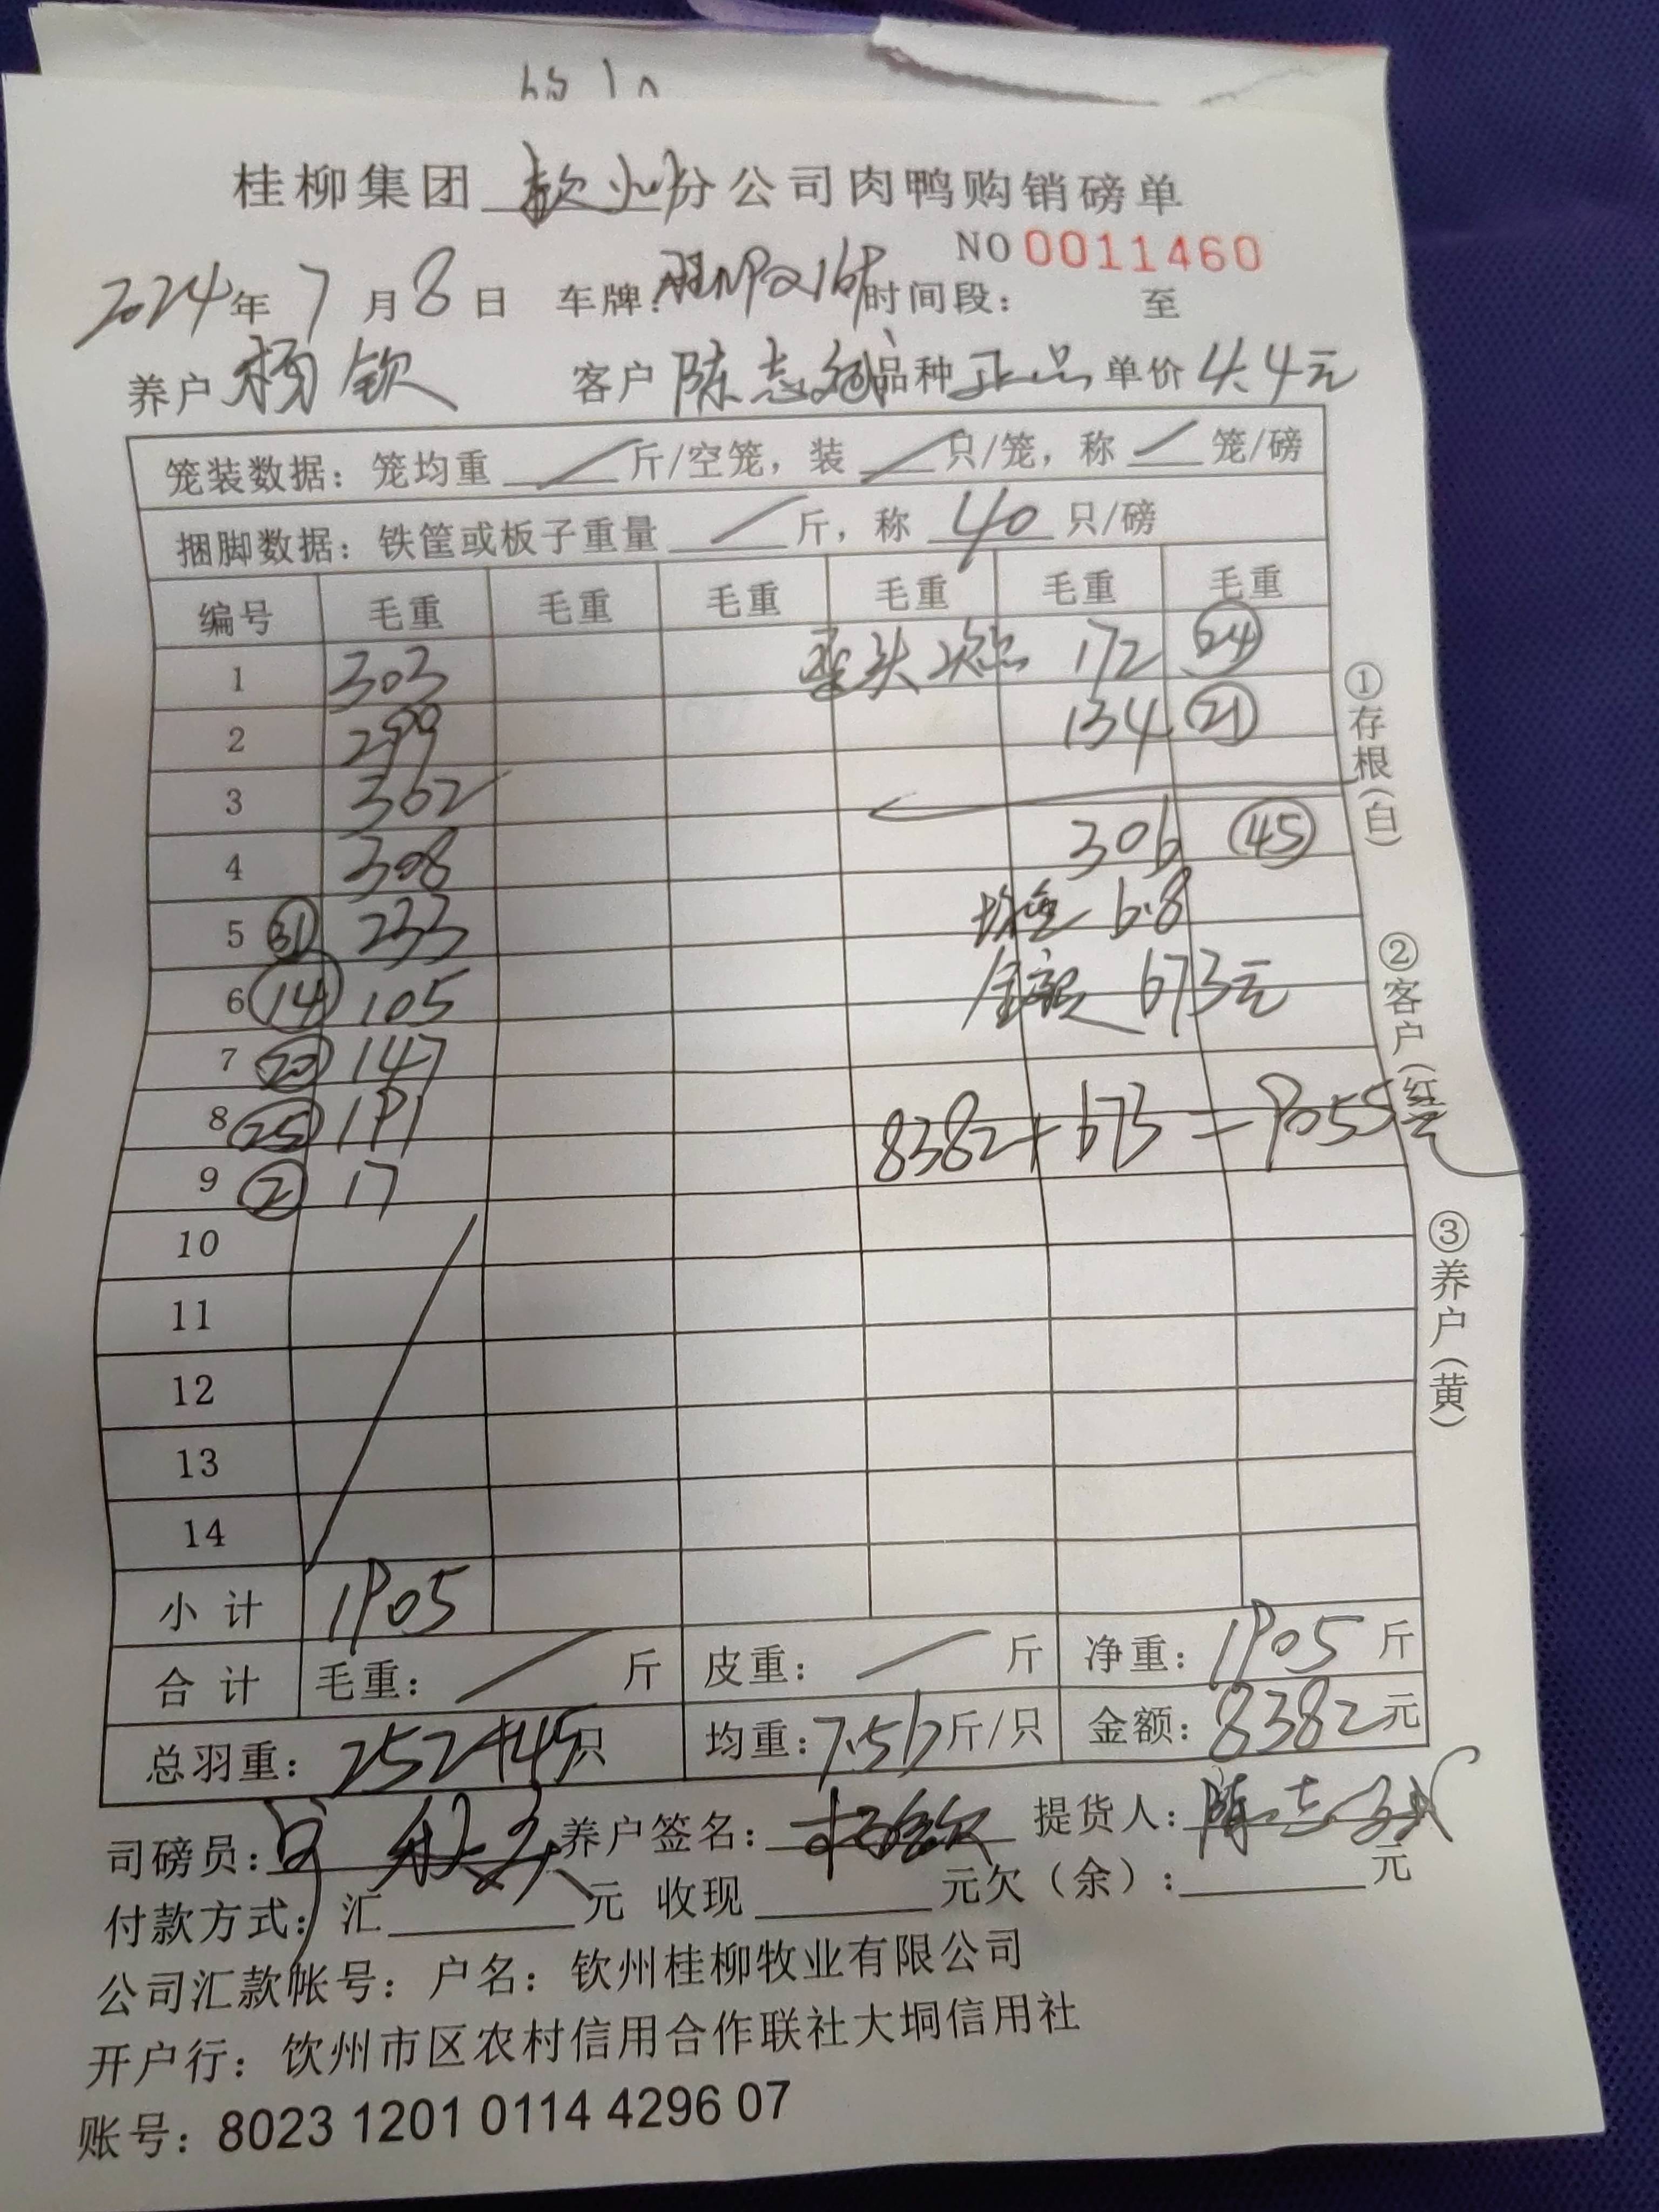 桂柳集团 钦州 分公司肉鸭购销磅单
NO 0011460
2024年 7月 8日 车牌: 时间段: 至
养户 杨钦 客户 陈志 品种 正品 单价 4.4元
笼装数据: 笼均重 / 斤/空笼, 装 / 只/笼, 称 / 笼/磅
捆脚数据: 铁筐或板子重量 / 斤, 称 40 只/磅
编号 毛重 毛重 毛重 毛重 毛重 毛重
1 303 歪头次品 172 24
2 299 134 21
3 302
4 308 306 45
5 31 233 均重 6.8
6 14 105 金额 673元
7 20 147
8 25 191 8382+673=9055元
9 2 17
10
11
12
13
14
小计 1905
合计 毛重: / 斤 皮重: / 斤 净重: 1905 斤
总羽重: 252+45只 均重: 7.56斤/只 金额: 8382元
司磅员: 养户签名: 杨钦 提货人: 陈志
付款方式: 汇 元 收现 元欠(余): 元
公司汇款帐号: 户名: 钦州桂柳牧业有限公司
开户行: 饮州市区农村信用合作联社大垌信用社
账号: 8023 1201 0114 4296 07
①存根(白)
②客户(红)
③养户(黄)